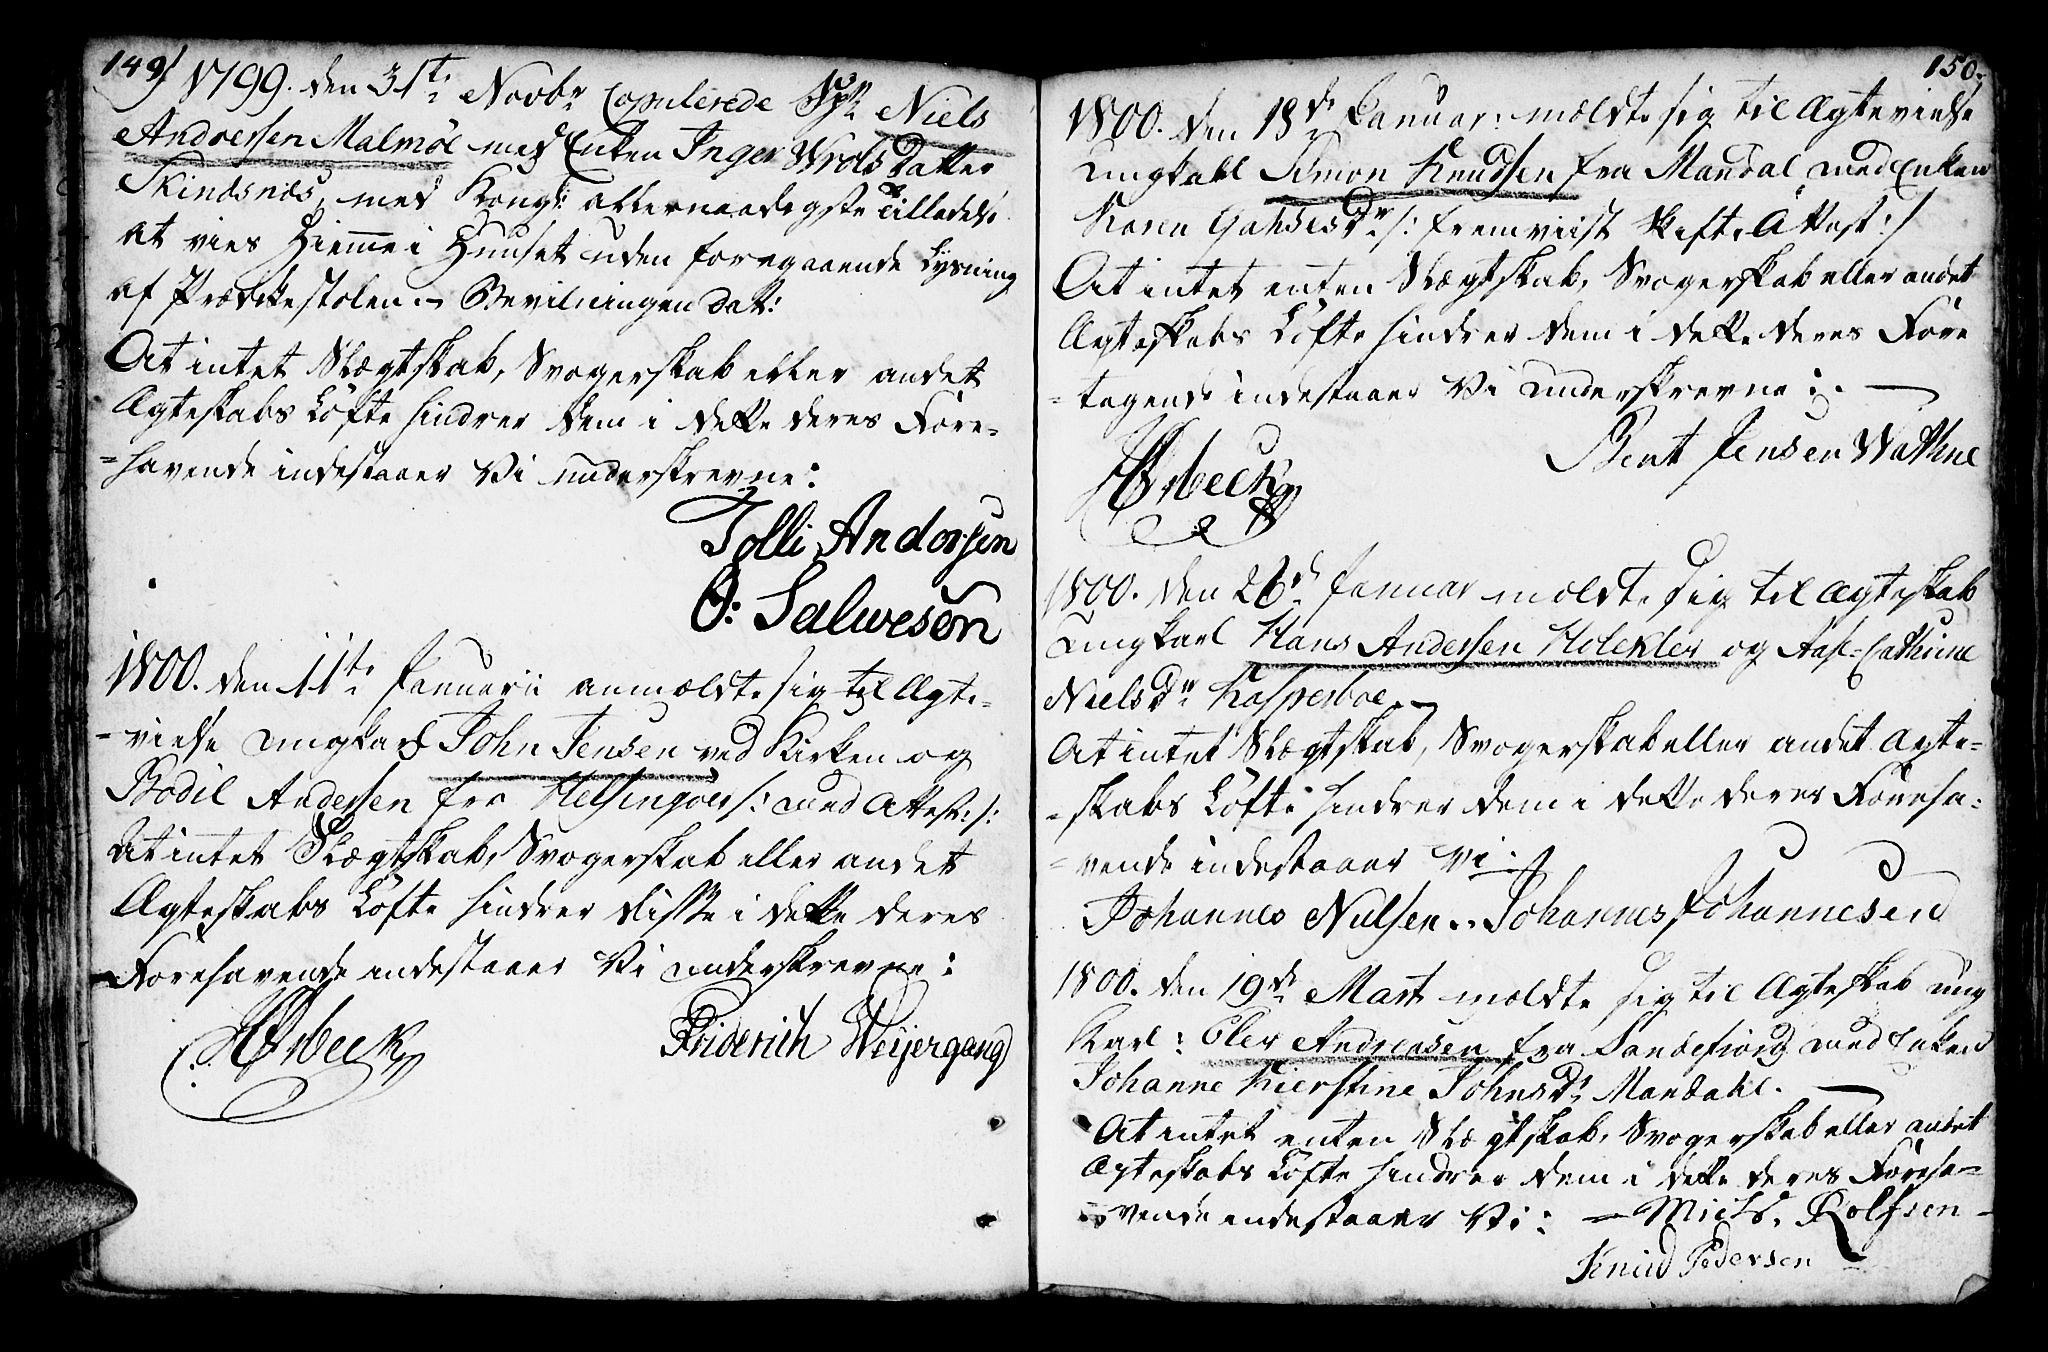 149/
1799. den 31te Novbr Copulerede Niels
Andressen Malmöe med Enken Inger Wrols Datter
Skindsnæs, med Kongl: allernaadigste Tilladelse
at vies Hjemme i Huuset uden foregaaende Lysning
af Prædikestolen. Bevilningen dat:
At intet Slægtskab, Svogerskab eller andet
Ægteskabs Löfte hindrer dem i dette deres Fore-
=havende indestaaer Vi underskrevne:
Tolli Andorsen
O: Salwesøn
1800. den 11te Januarii anmældte sig til Ægte-
-vielse ungkarl John Jensen ved Kirken og
Bodil Andersen fra Helsingöer /: med Attest :/:
At intet Slægtskab, Svogerskab eller andet
Ægteskabs Löfte hindrer disse i dette deres
Forehavende indestaaer Vi underskrevne:
Orbeck Friderich Weijergang
150.
1800. den 18de Januar: mældte sig til Ægtevielse
ungkarl Simon Knudsen fra Mandal med Enken
Karen /: fremviist Skifte Attest :/
At intet enten Slægtskab, Svogerskab eller andet
Ægteskabs Löfte hindrer dem i dette deres Före
=tagende indestaaer Vi underskrevne:
Bent Jensen Wathne
Orbeck
1800. den 26de Januar mældte sig til Ægteskab
Ungkarl Hans Andersen Holekler og Aase Cathrine
Nielsdr Kasperboe.
At intet Slægtskab, Svogerskab eller andet Ægte=
=skabs Löfte hindrer dem i dette deres Föreha=
=vende indestaaer Vi:
Johannes Nielsen. Johannes Johannesen
1800. den 19de Marts mældte sig til Ægteskab ung
Karl: Oler Andreasen fra Sandefiord med Enken
Johanne Kierstine Johnsdr Mandahl.
At intet enten Slægtskab, Svogerskab eller andet
Ægteskabs Löfte hindrer dem i dette deres Föreha=
=vende indestaaer Vi: Michl. Rolfsen
Knud Pedersen